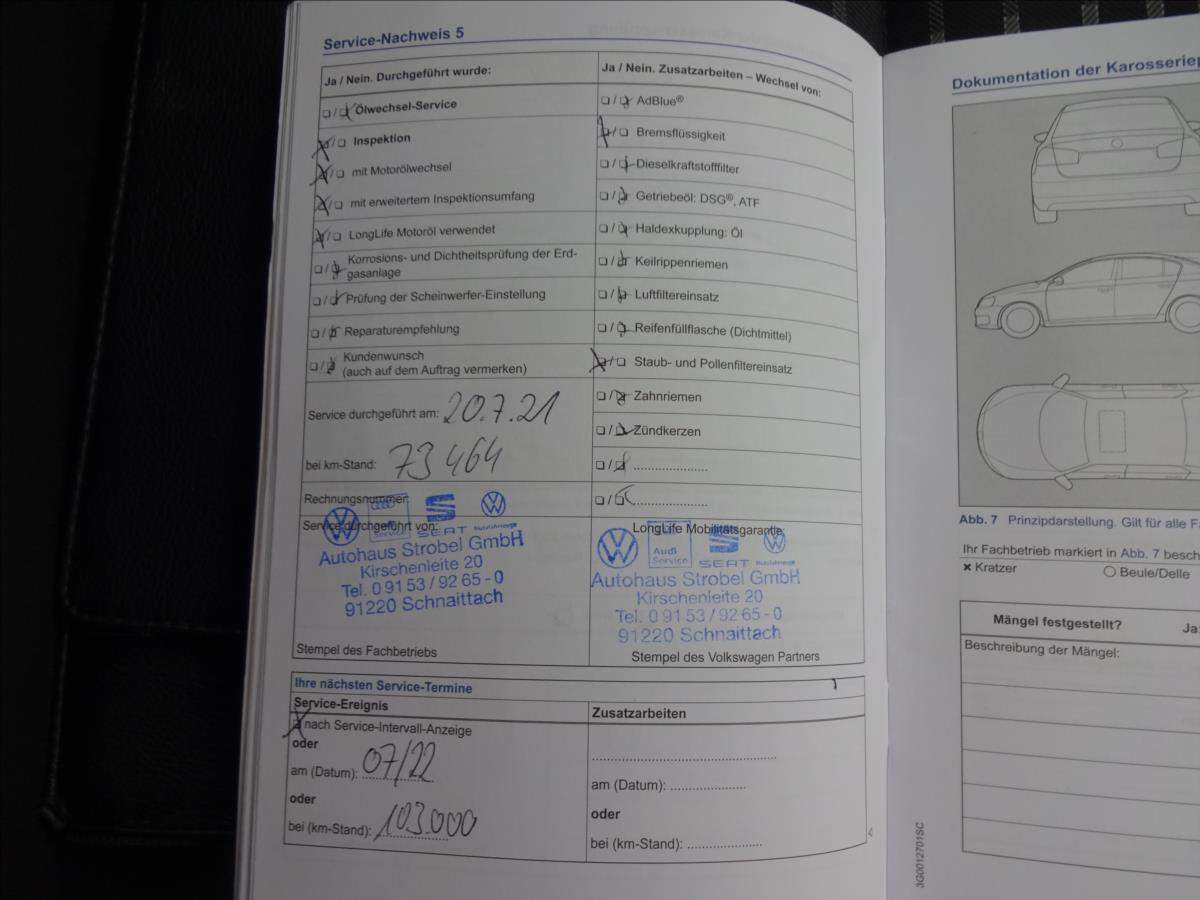 Service-Nachweis 5
Ja / Nein. Durchgeführt wurde:
Ölwechsel-Service
Inspektion
mit Motorölwechsel
mit erweitertem Inspektionsumfang
LongLife Motoröl verwendet
Korrosions- und Dichtheitsprüfung der Erd-
gasanlage
Prüfung der Scheinwerfer-Einstellung
Reparaturempfehlung
Kundenwunsch
(auch auf dem Auftrag vermerken)
Service durchgeführt am: 20.7.21
bei km-Stand: 73 464
Rechnungsnummer:
Service durchgeführt von:
SEAT
Autohaus Strobel GmbH
Kirschenleite 20
Tel. 0 91 53 / 92 65 - 0
91220 Schnaittach
Stempel des Fachbetriebs
Ja / Nein. Zusatzarbeiten – Wechsel von:
AdBlue®
Bremsflüssigkeit
Dieselkraftstofffilter
Getriebeöl: DSG®, ATF
Haldexkupplung: Öl
Keilrippenriemen
Luftfiltereinsatz
Reifenfüllflasche (Dichtmittel)
Staub- und Pollenfiltereinsatz
Zahnriemen
Zündkerzen
LongLife Mobilitätsgarantie:
Audi
Service
SEAT
Autohaus Strobel GmbH
Kirschenleite 20
Tel. 0 91 53 / 92 65 - 0
91220 Schnaittach
Stempel des Volkswagen Partners
Ihre nächsten Service-Termine
Service-Ereignis
nach Service-Intervall-Anzeige
oder
am (Datum): 07/22
oder
bei (km-Stand): 103.000
Zusatzarbeiten
am (Datum):
oder
bei (km-Stand):
Dokumentation der Karosseriep
Abb. 7 Prinzipdarstellung. Gilt für alle Fa
Ihr Fachbetrieb markiert in Abb. 7 besch
× Kratzer
○ Beule/Delle
Mängel festgestellt? Ja:
Beschreibung der Mängel:
3G0012701SC